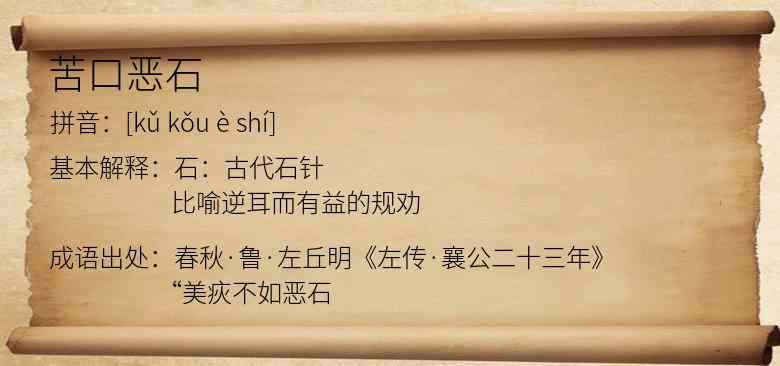 苦口恶石
拼音：[kǔ kǒu è shí]
基本解释：石：古代石针
比喻逆耳而有益的规劝
成语出处：春秋·鲁·左丘明《左传·襄公二十三年》
“美疢不如恶石